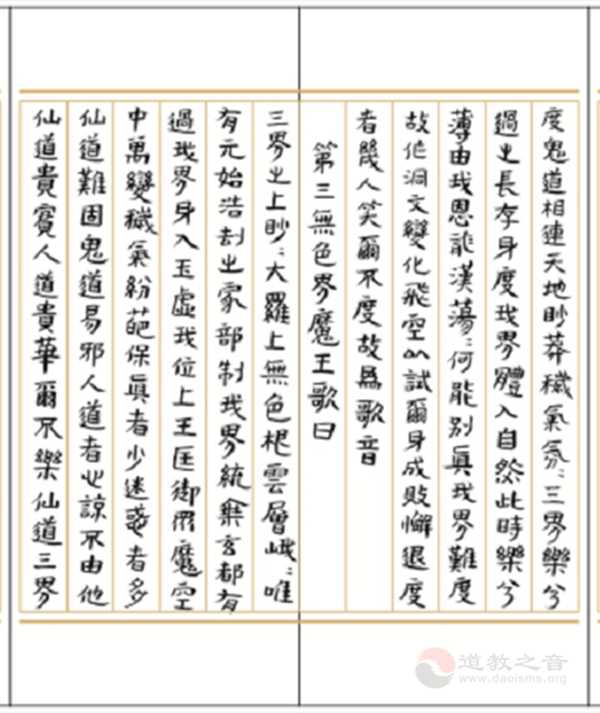 度鬼道相連天地眇莽穢氣氛〻三界樂兮
過之長存身度我界體入自然此時樂兮
薄由我恩龍漢蕩〻何能別眞我界難度
故作洞文變化飛空以試爾身成敗懈退度
者幾人笑爾不度故爲歌音
第三無色界魔王歌曰
三界之上眇〻大羅上無色根雲層峨〻唯
有元始浩刼之家部制我界統乘玄都有
過我界身入玉虛我位上王匡御眾魔空
中萬變穢氣紛葩保眞者少迷惑者多
仙道難固鬼道易邪人道者心諒不由他
仙道貴實人道貴華爾不樂仙道三界
道教之音
www.daoisms.org